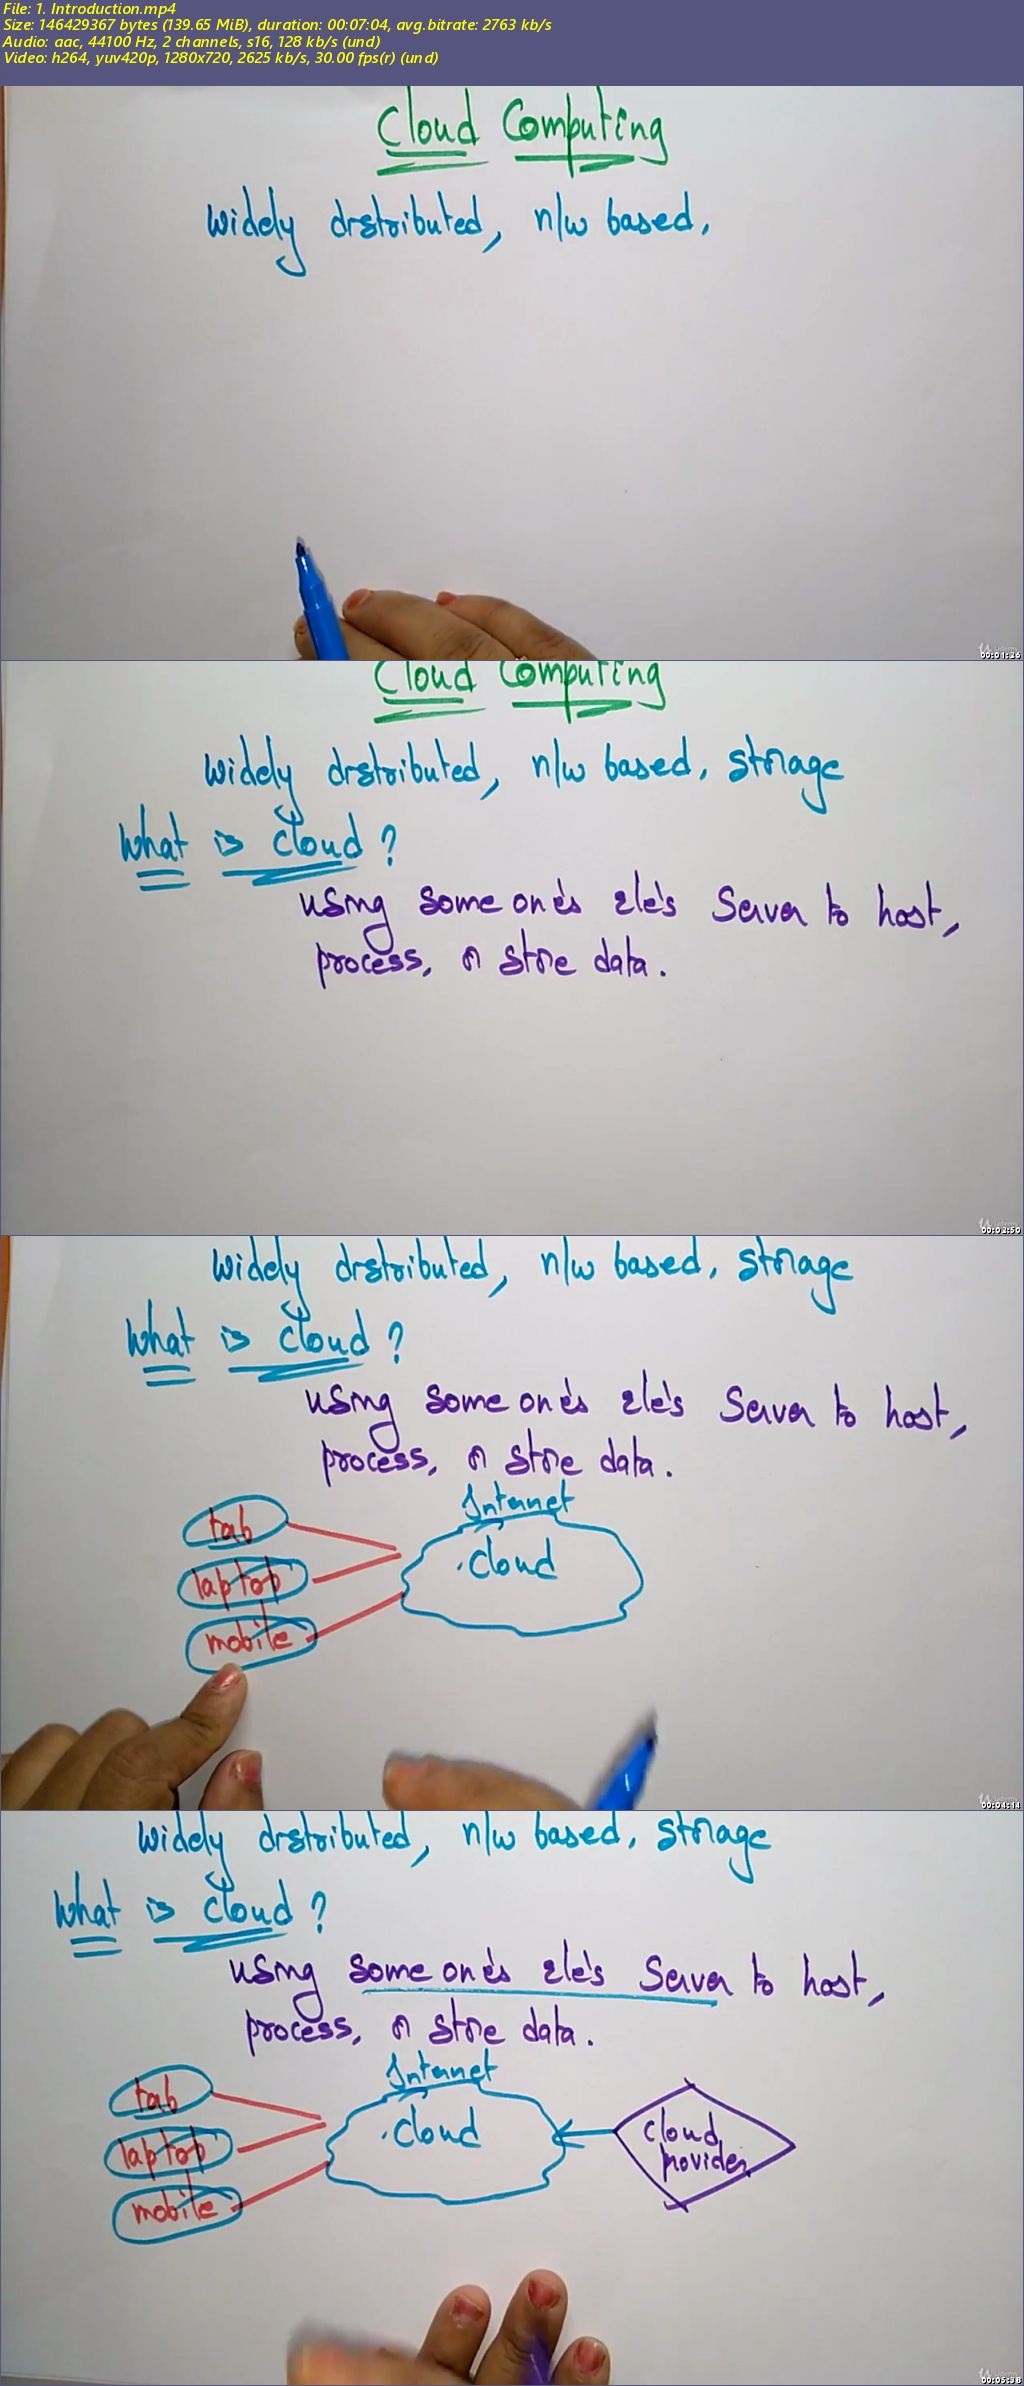 File: 1. Introduction.mp4
Size: 146429367 bytes (139.65 MiB), duration: 00:07:04, avg.bitrate: 2763 kb/s
Audio: aac, 44100 Hz, 2 channels, s16, 128 kb/s (und)
Video: h264, yuv420p, 1280x720, 2625 kb/s, 30.00 fps(r) (und)
Cloud Computing
widely distributed, n/w based,
00:01:26
Cloud Computing
widely distributed, n/w based, storage
What is cloud?
using some one's ele's Server to host,
process, or store data.
00:02:50
widely distributed, n/w based, storage
What is cloud?
using some one's ele's Server to host,
process, or store data.
Internet
tab
.cloud
laptop
mobile
00:04:14
widely distributed, n/w based, storage
What is cloud?
using some one's ele's Server to host,
process, or store data.
Internet
tab
.cloud
cloud
provider
laptop
mobile
00:05:38